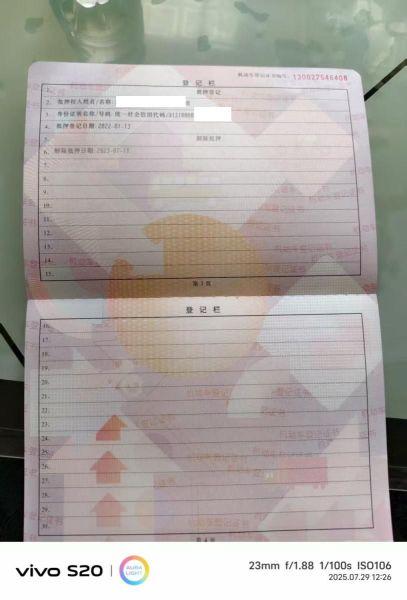 机动车登记证书编号：130027546408
登记栏
1. 抵押登记
2. 抵押权人姓名/名称：
3. 身份证明名称/号码：统一社会信用代码/
4. 抵押登记日期：2022-01-13
5. 解除抵押
6. 解除抵押日期：2023-07-13
7.
8.
9.
10.
11.
12.
13.
14.
15.
第 3 页
登记栏
16.
17.
18.
19.
20.
21.
22.
23.
24.
25.
26.
27.
28.
29.
30.
第 4 页
vivo S20 | AURA LIGHT
23mm f/1.88 1/100s ISO106
2025.07.29 12:26